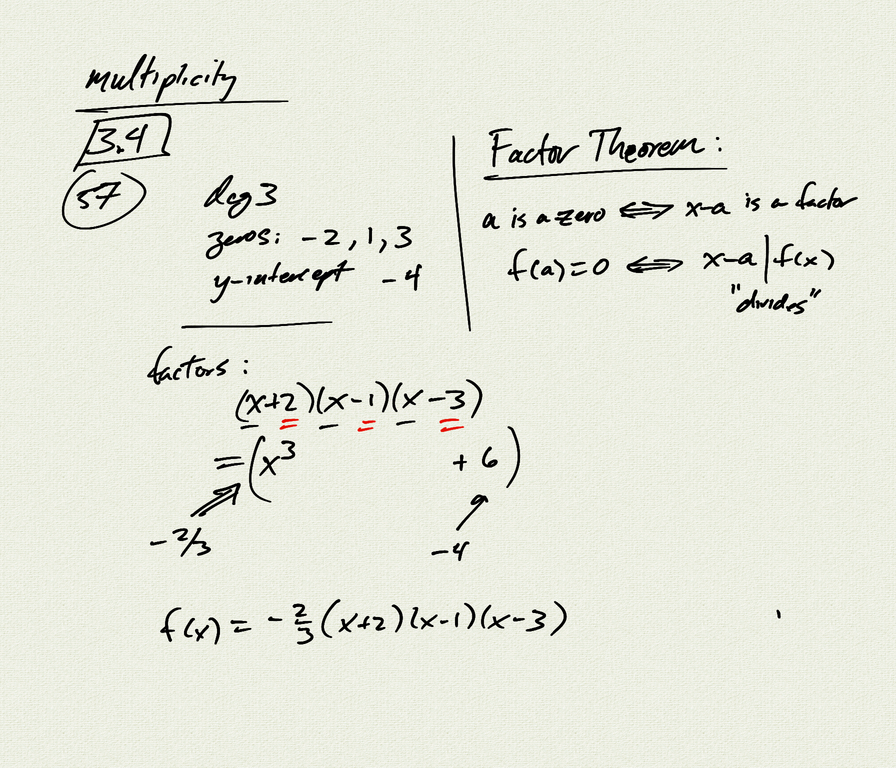 multiplicity
3.4
57
deg 3
zeros: -2, 1, 3
y-intercept -4
Factor Theorem:
a is a zero ⟺ x-a is a factor
f(a)=0 ⟺ x-a | f(x)
"divides"
factors:
(x+2)(x-1)(x-3)
= (x³ + 6)
-2/3
-4
f(x) = -2/3 (x+2)(x-1)(x-3)